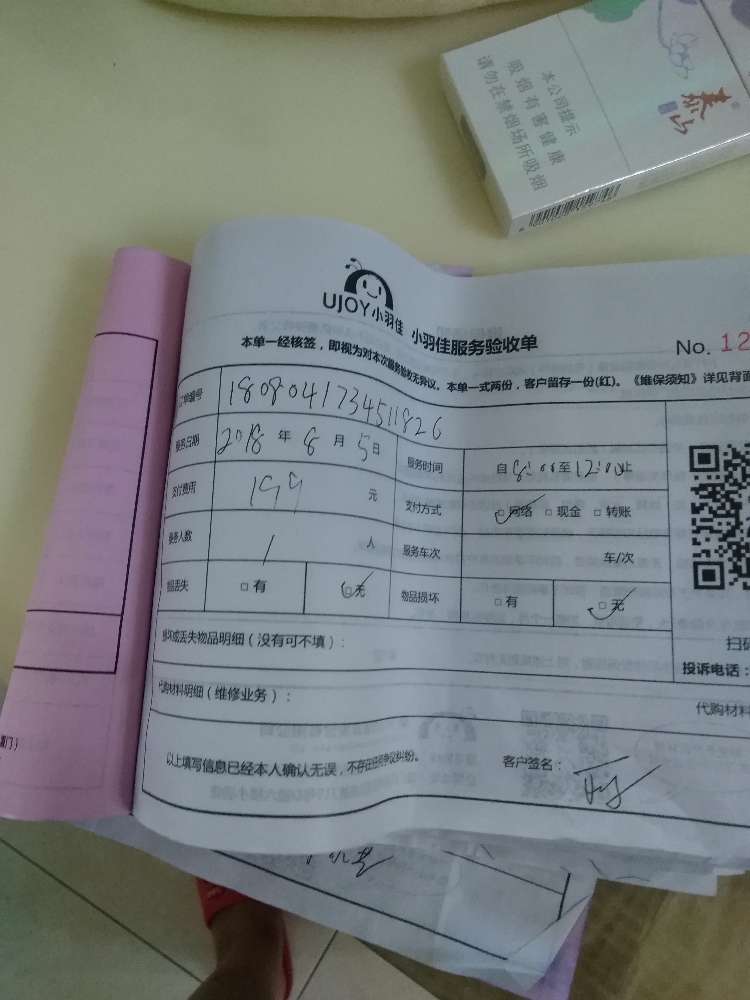 泰山
本公司提示
吸烟有害健康
请勿在禁烟场所吸烟
UJOY小羽佳 小羽佳服务验收单
No. 12
本单一经核签，即视为对本次服务验收无异议。本单一式两份，客户留存一份(红)。《维保须知》详见背面
订单编号 1808041734511826
服务日期 2018 年 8 月 5 日 服务时间 自 8:00 至 12:00 止
支付费用 199 元 支付方式 □网络 □现金 □转账
服务人数 1 人 服务车次 车/次
物品丢失 □有 □无 物品损坏 □有 □无
损坏或丢失物品明细（没有可不填）：
扫码
投诉电话：
代购材料明细（维修业务）：
代购材料
以上填写信息已经本人确认无误，不存在任何争议纠纷。 客户签名：